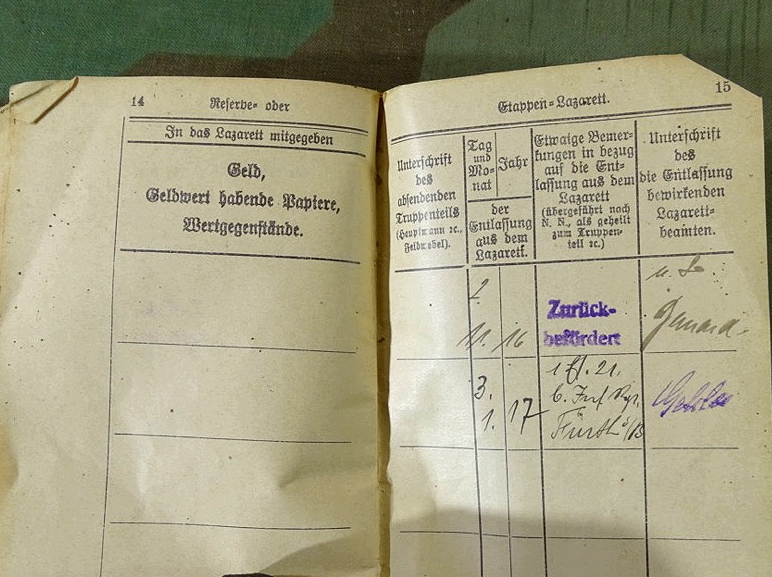 14
Reserve- oder
In das Lazarett mitgegeben
Geld,
Geldwert habende Papiere,
Wertgegenstände.
Etappen-Lazarett.
15
Unterschrift
des
absendenden
Truppenteils
(Hauptmann ꝛc.,
Feldwebel).
Tag
und
Mo-
nat
Jahr
der
Entlassung
aus dem
Lazarett.
Etwaige Bemer-
kungen in bezug
auf die Ent-
lassung aus dem
Lazarett
(übergeführt nach
N. N., als geheilt
zum Truppen-
teil ꝛc.)
Unterschrift
des
die Entlassung
bewirkenden
Lazarett-
beamten.
2.
11. 16
Zurück-
befördert
3.
1. 17
21.
Fürth